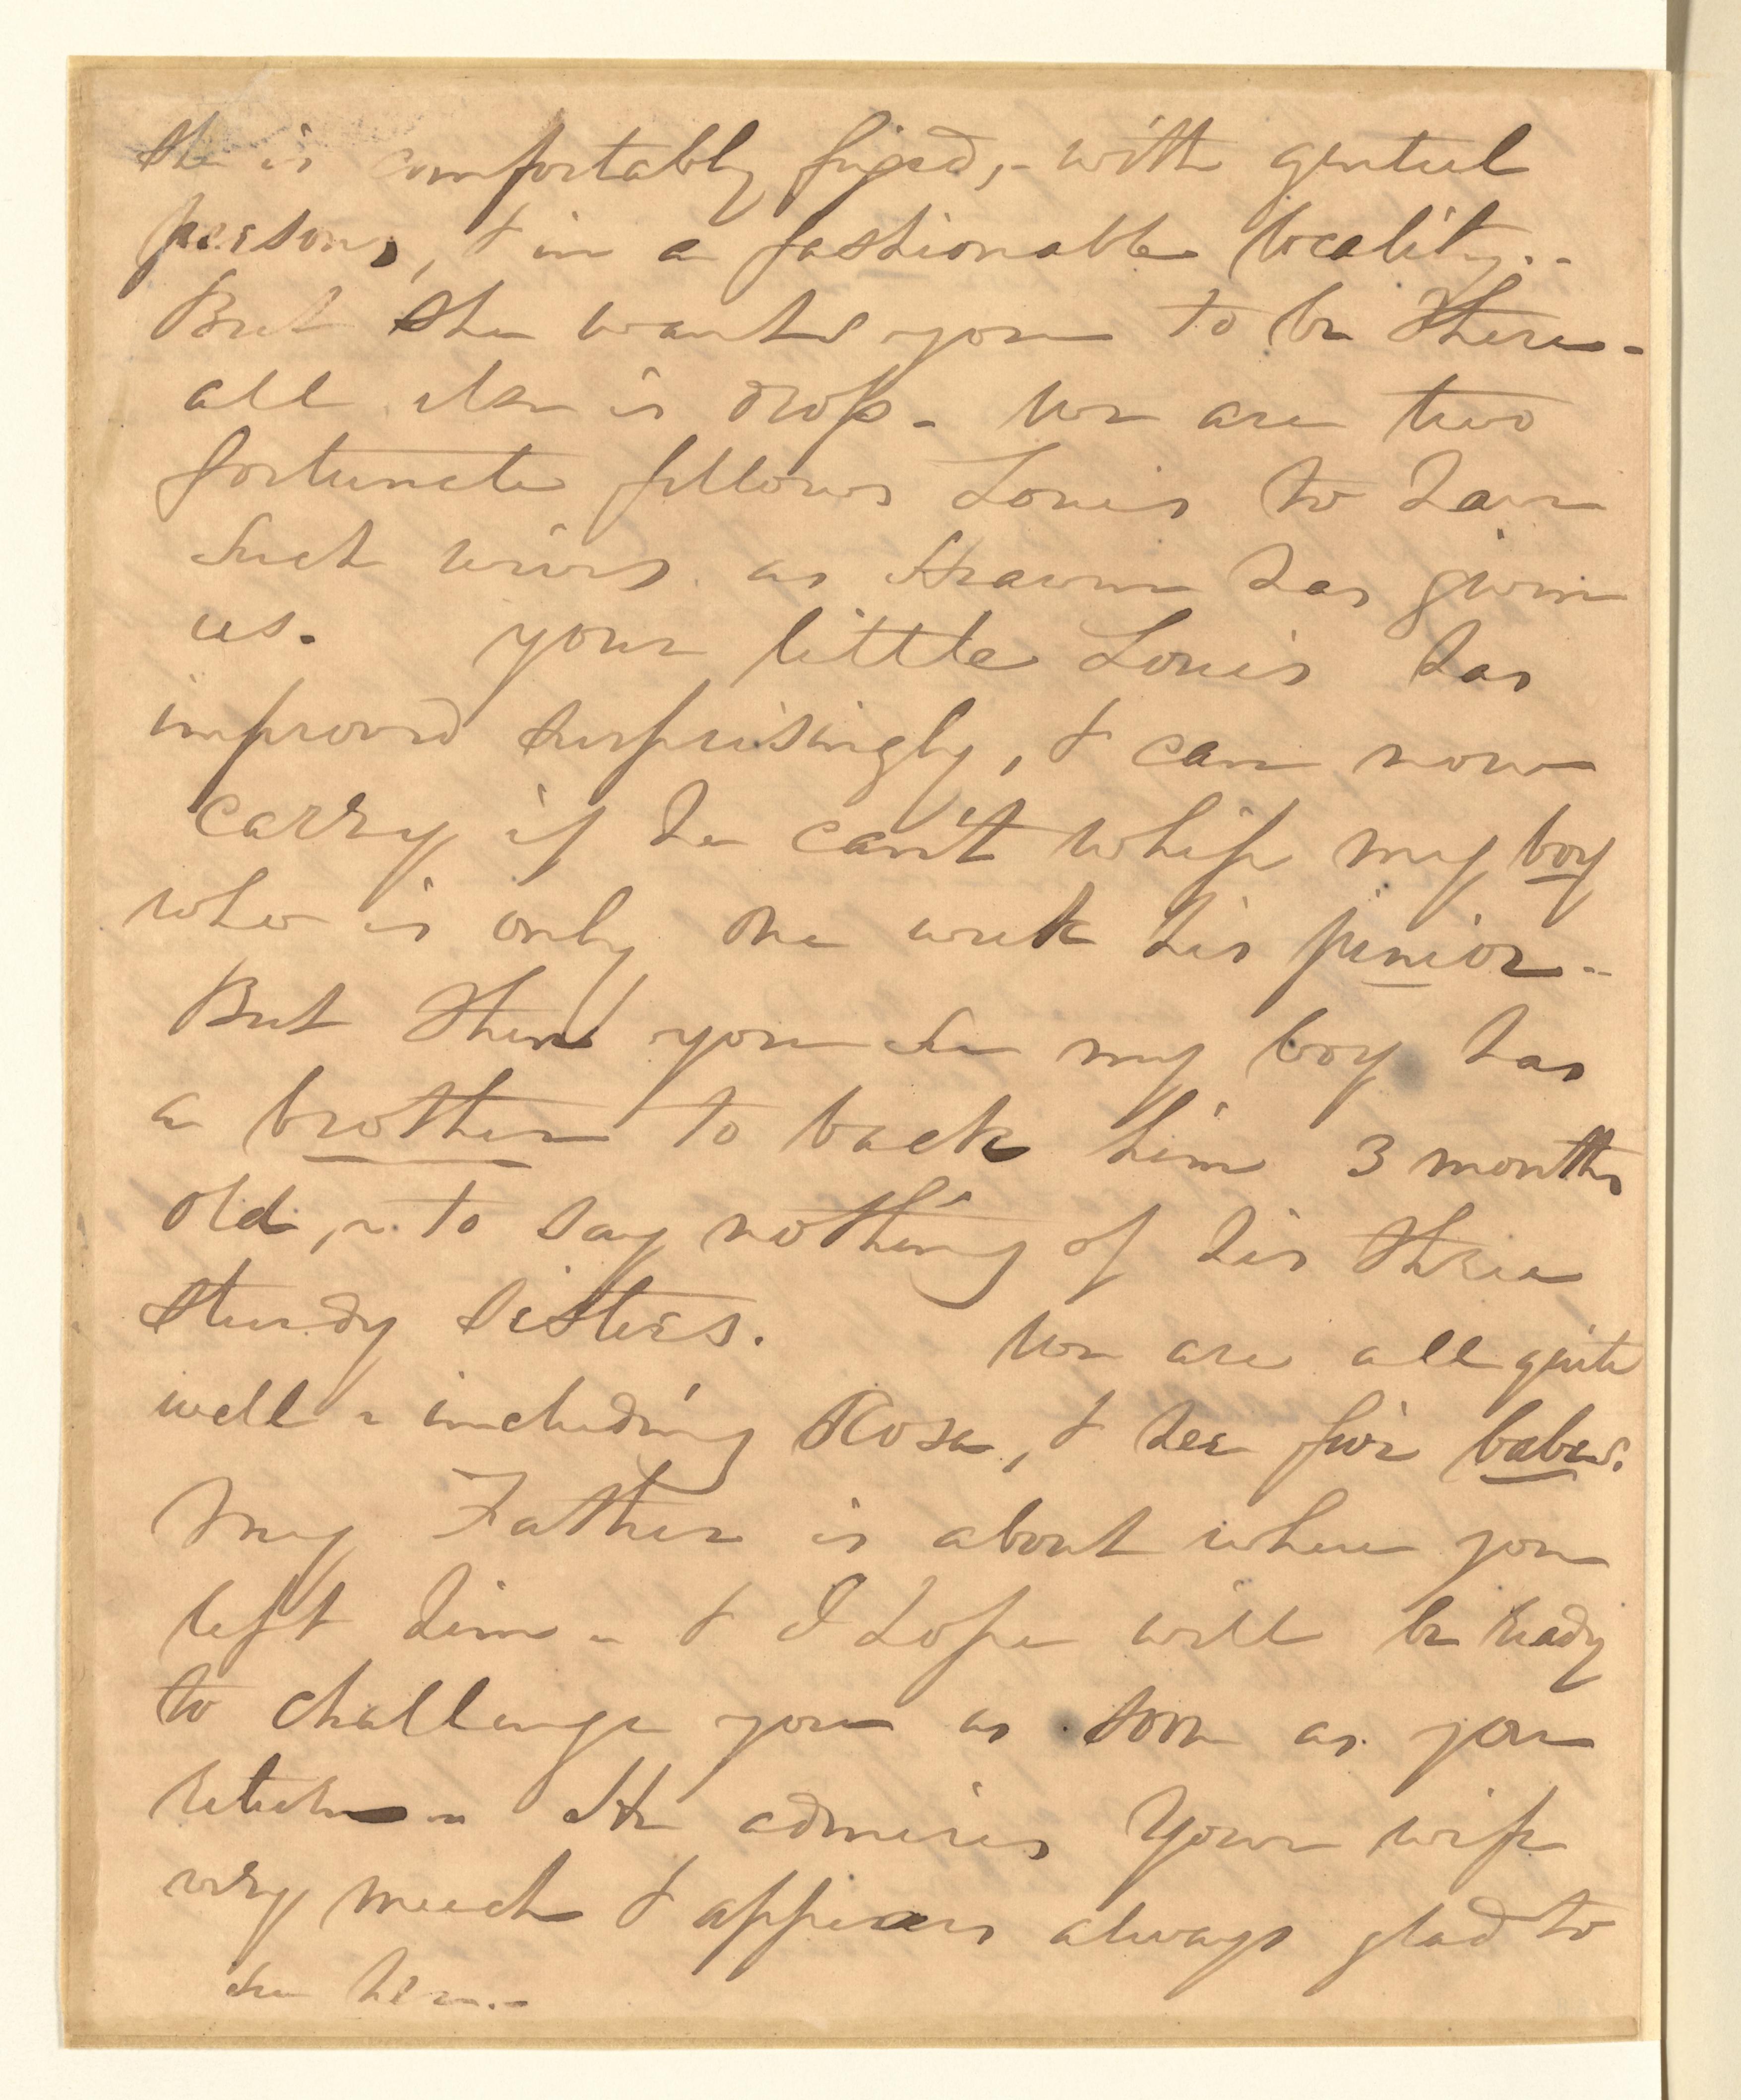 She is comfortably fixed, - with genteel
persons, & in a fashionable locality. -
But she wants you to be there -
all else is dross - We are two
fortunate fellows Louis to have
such wives as Heaven has given
us. Your little Louis has
improved surprisingly, & can now
carry if he can't whip my boy
who is only one week his junior -
But then you see my boy has
a brother to back him 3 months
old, - to say nothing of his three
sturdy sisters. We are all quite
well - including Rosa, & her five babes.
My Father is about where you
left him - & I hope will be ready
to challenge you as soon as you
return - He admires your wife
very much & appears always glad to
see her. -